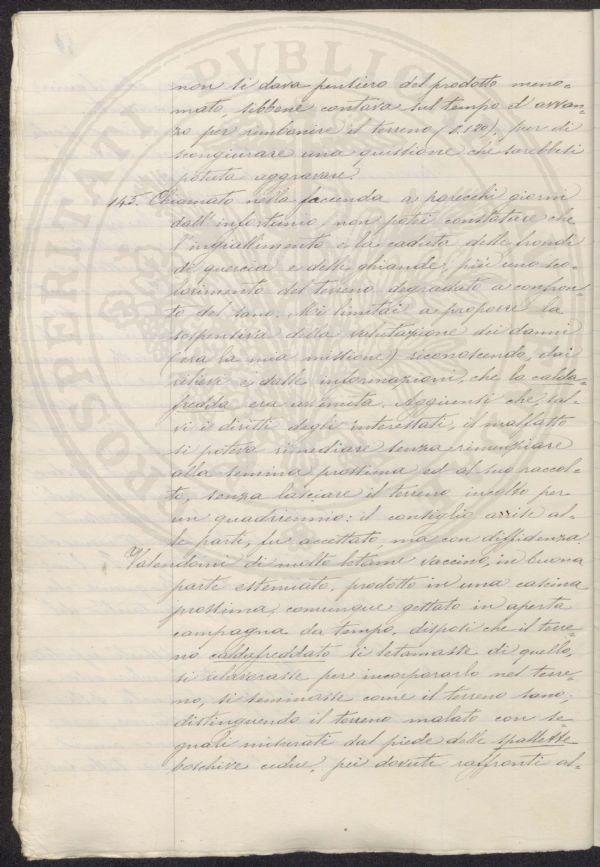 non si dava pensiero del prodotto meno-
mato, sibbene contava sul tempo d'avvan-
zo per rimbonire il terreno (§.120), pur di
scongiurare una quistione che sarebbesi
potuta aggravare.
145. Chiamato nella facenda a parecchi giorni
dall'infortunio, non potei constatare che
l'ingiallimento e la caduta delle frondi
di quercia e delle ghiande, più uno sco-
lorimento del terreno degradato a confron-
to del sano. Mi limitai a proporre la
sospensiva della valutazione dei danni
(era la mia missione) riconoscendo, dai
rilievi e dalle informazioni, che la calda-
fredda era avvenuta. Aggiunsi che, sal-
vi i diritti degli interessati, il malfatto
si poteva rimediare senza rinunziare
alla semina prossima ed al suo raccol-
to, senza lasciare il terreno incolto per
un quadriennio: il consiglio arrise al-
le parti, fu accettato, ma con diffidenza
Valendomi di molto letame vaccino, in buona
parte estenuato, prodotto in una cascina
prossima, comunque gettato in aperta
campagna da tempo, disposi che il terre-
no caldafreddato si letamasse di quello,
si rilavorasse per incorporarlo nel terre-
no, si seminasse come il terreno sano;
distinguendo il terreno malato con se-
gnali misurati dal piede delle spallette
boschive cedue, pei dovuti raffronti al-
PROSPERITATI PVBLIC